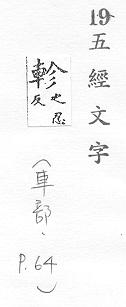 19 五經文字
軫 之忍反
(車部.
P.64)